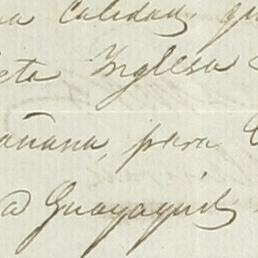 calidad, qu
eta Inglesa
añana, para
a Guayaquil